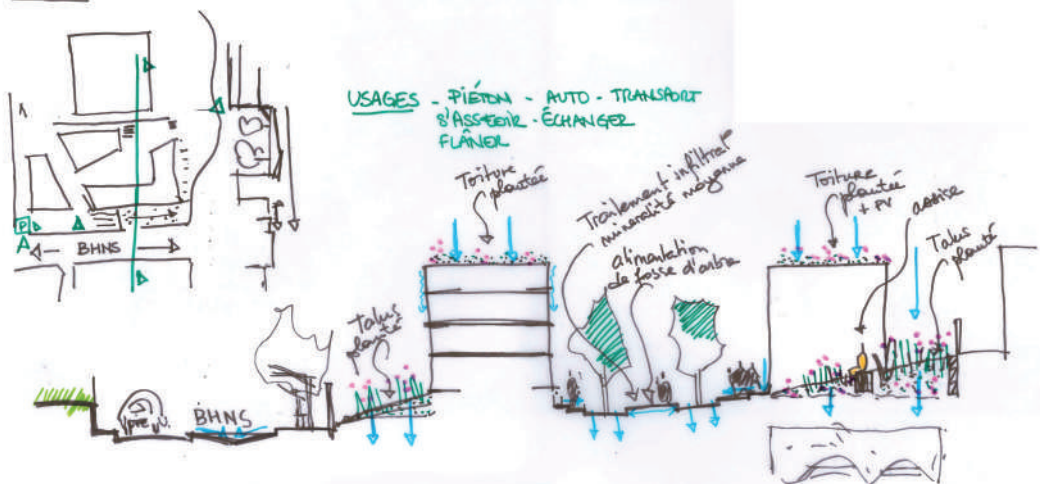 USAGES - PIÉTON - AUTO - TRANSPORT
S'ASSEOIR - ÉCHANGER
FLÂNER
P
BHNS
Toiture
plantée
Traitement infiltrat°
minéralité moyenne
alimentation
de fosse d'arbre
Toiture
plantée
+ PV
assise
Talus
planté
Talus
planté
BHNS